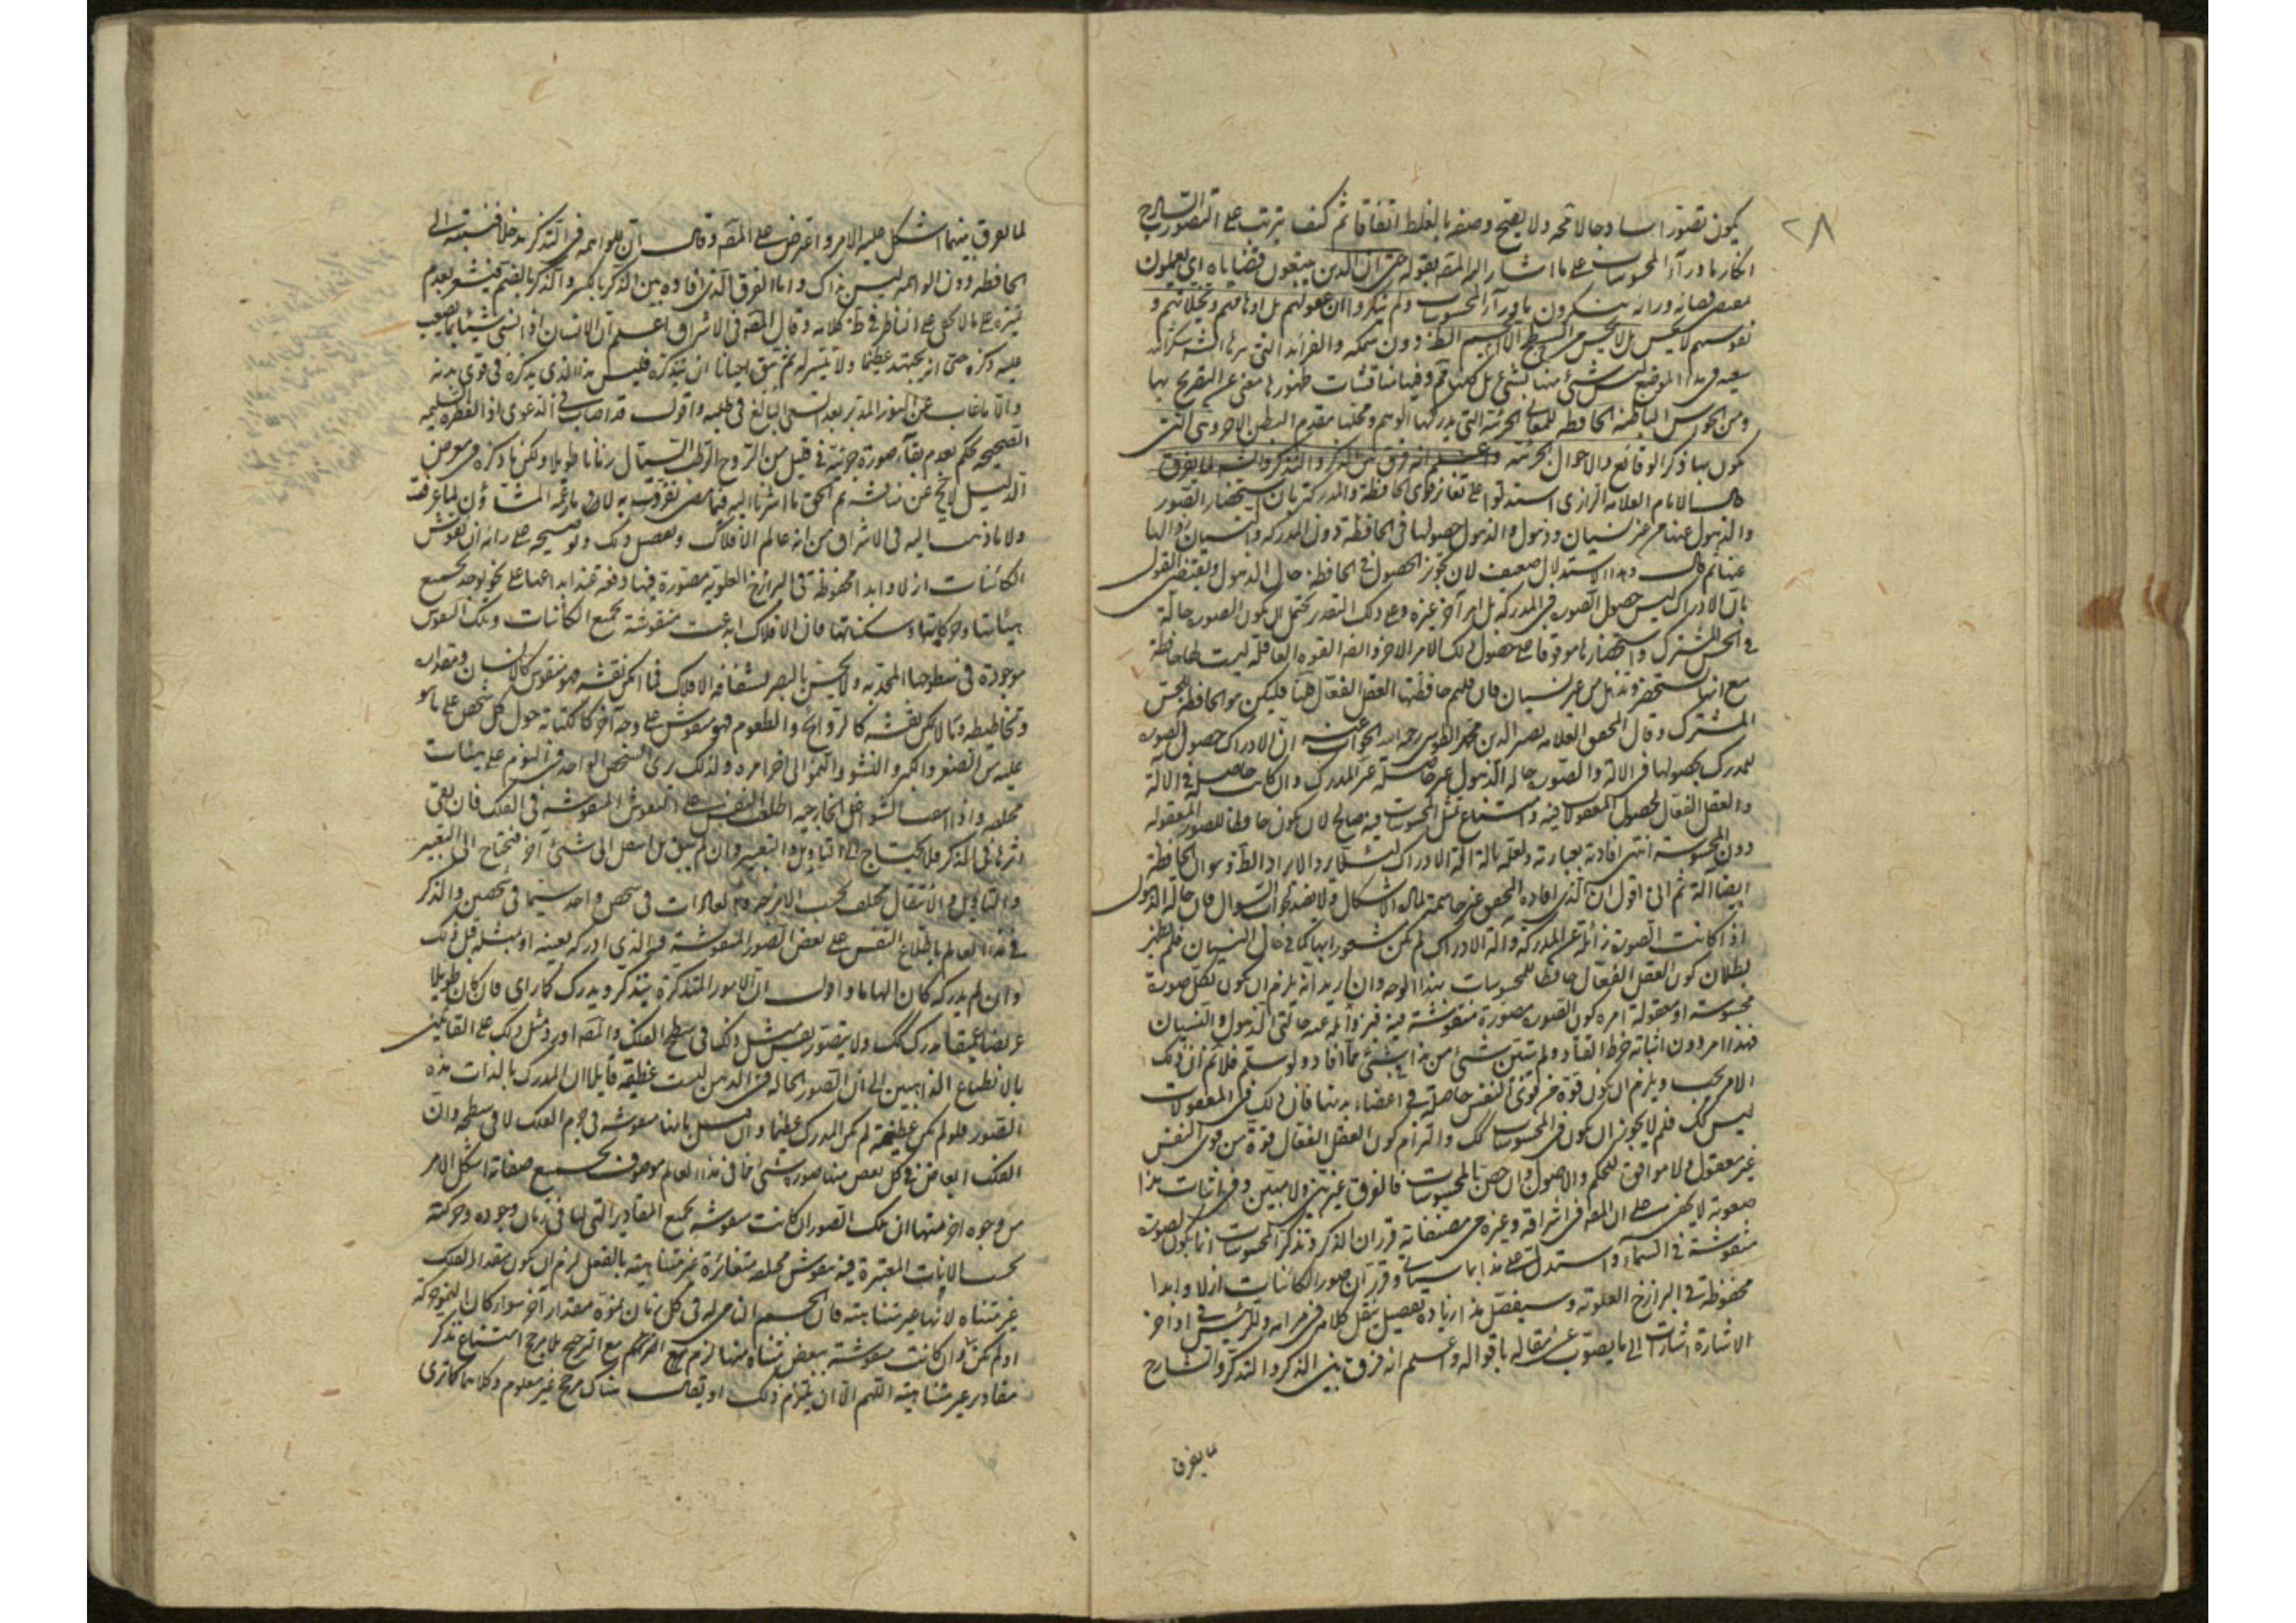 ٢٨
يكون تصورا ساذجا لا محة ولا يصح وصفه بالغلط اتفاقا ثم كيف يترتب على التصور الساذج
انكار ما وراء المحسوسات على ما اشار اليه المصه بقوله حتى ان الذين يتبعون قضاياه اي يعملون
بمقتضى قضاياه ورائه ينكرون ما وراء المحسوسات ولم ينكروا ان عقولهم بل اوهامهم وتخيلاتهم و
نفوسهم لا يحس بل لا يحس من السطح الا الجسم الظ دون سمكه والفرائد التي
في هذا الموضع ليس شئ منها بشئ بل كلها وفيها مناقشات ظهورها مغنى عن التصريح بها
ومن الحواس الباطنة الحافظة للمعاني الجزئية التي يدركها الوهم ومحلها مقدم البطن الاخر وهى التى
يكون بها ذكر الوقائع والاحوال الجزئية واعلم انه فرق بين الذكر والتذكر والشه لما لم يفرق
قال الامام العلامة الرازي استدلوا على تغاير قوى الحافظة والمدركة بان استحضار الصور
والذهول عنها من غير نسيان وذهول والذهول حصولها في الحافظة دون المدركة والنسيان زوالها
عنها ثم قال وهذا الاستدلال ضعيف لان تجوز الحصول في الحافظة حال الذهول ويقتضي القول
بان الادراك ليس حصول الصورة في المدركة بل امر آخر غيره وعلى ذلك التقدير يحتمل ان يكون الصور حالة
في الحس المشترك واستحضارها موقوفا على حصول ذلك الامر الاخر وايضا القوة العاقلة ليست لها حافظة
مع انها تستحضر وتذهل من غير نسيان فان قلتم حافظتها العقل الفعال قلنا فليكن هو الحافظة للحس
المشترك وقال المحقق العلامة نصير الدين محمد الطوسي رحمه الله الجواب عنه ان الادراك حصول الصورة
للمدرك بحصولها في الآلة والصورة حالة الذهول غير حاصلة عند المدرك وان كانت حاصلة في الآلة
والعقل الفعال لحصول المعقولات فيه وامتناع تمثل المحسوسات فيه صالح لان يكون حافظا للصور المعقولة
دون المحسوسة انتهى افادته بعبارته ولعله بالة آلة الادراك لئلا يرد الايراد الظ وهو ان الحافظة
ايضا آلة ثم اني اقول ان الذي افاده المحقق غير حاسمة لمادة الاشكال ولا يفيد جواب السؤال فان حالة الذهول
اذا كانت الصورة زائلة عن المدركة وآلة الادراك لم يكن شعور بها كما في حال النسيان فلم يظهر
بطلان كون العقل الفعال حافظا للمحسوسات بهذا الوجه وان اريد انه يلزم ان يكون لكل صورة
محسوسة او معقولة امره كون الصورة مصورة منقوشة فيه وزائله عنه حالتي الذهول والنسيان
فهذا امر دون اثباته خرط القتاد ولم يتبين شئ من هذا بشئ مما افاد ولو سلم فلا نم ان ذلك
الامر يجب ويلزم ان يكون قوة من قوى النفس حاصلة في اعضاء بدنها فان ذلك في المعقولات
ليس كك فلم لا يجوز ان يكون في المحسوسات كك والتزام كون العقل الفعال قوة من قوى النفس
غير معقول ولا موافق للحكم والاصول وان خص بالمحسوسات فالفرق غير بين ولا مبين وفي اثبات هذا
صعوبة لا يخفى على ان المصه في اشراقه وغيره من مصنفاته قرر ان الذكر وتذكر المحسوسات انما يكون لصورة
منقوشة في السماء واستدل على هذا بما سياتي وقرر ان صور الكائنات ازلا وابدا
محفوظة في البرازخ العلوية وسيفصل هذا زيادة تفصيل بنقل كلامي في مرامه وللرئيس في اواخر
الاشارة اشارات الى ما يصوب مقاله باقواله واعلم انه فرق بين الذكر والتذكر والشارح
لما يفرق
لما لم يفرق بينهما اشكل عليه الامر واعترض على المصه وقال ان للواهمه في التذكر مدخلا فنسبته الى
الحافظه دون الواهمه ليس بذاك واما الفرق الذي افاده بين الذكر بالكسر والذكر بالضم فيشعر بعدم
تميزه على ما لا يخفى على الناظر في ظ كلامه وقال المصه في الاشراق اعلم ان الانسان اذا نسى شيئا ربما يصعب
عليه ذكره حتى انه يجتهد عظيما ولا يتيسر له ثم يتفق احيانا ان يتذكره فليس هذا الذي يذكره في قوى بدنه
والا ما غاب عن النور المدبر بعد السعي البالغ في طلبه واقول قد اصاب في الدعوى اذ الفطرة السليمه
الصحيحه تحكم بعدم بقاء صورة جزئية في قليل من الروح الرطب السيال زمانا طويلا ولكن ما ذكره في معرض
الدليل لا يخ عن مناقشه ثم الحق ما اشرنا اليه فيما مضى نعرفت به لا ما زعمه المشاؤن لما عرفت
ولا ما ذهب اليه في الاشراق من انه عالم الافلاك وتفصيل ذلك وتوضيحه على رائه ان نقوش
الكائنات ازلا وابدا محفوظة في البرازخ العلوية مصورة فيها دفعة عند ابداعها على نحو يوجد بجميع
هيئاتها وحركاتها وسكناتها فان الافلاك ابدعت منقوشة بجميع الكائنات وتلك النقوش
موجودة في سطوحها المحدبه ولا يحس بالبصر لشفافة الافلاك فما امكن نقشه فهو منقوش كالانسان ومقداره
وتخاطيطه وما لا يمكن نقشه كالروائح والطعوم فهو منقوش على وجه آخر كالكتابة حول كل شخص على ما هو
عليه من الصغر والكبر والنشو والنمو الى اخر امره ولذلك يرى الشخص الواحد في النوم على هيئات
مختلفه واذا ارتفعت الشواغل الخارجيه اطلعت النفس على النقوش المنقوشة في الفلك فان بقى
اثرها في الذكر فلا يحتاج الى التاويل والتعبير وان لم يبق بل انتقل الى شئ آخر فيحتاج الى التعبير
والتاويل والانتقال يختلف بحسب الامزجة والعادات في شخص واحد سيما في شخصين والذكر
في هذا العالم باطلاع النفس على بعض الصور المنقوشة فالذي ادركه بعينه او بمثله قبل ذلك
وان لم يدركه كان الهاما واقول ان الامور المتذكرة يتذكر ويدرك كما راى فان كان طويلا
عريضا عميقا يدرك كك ولا يتصور نقش مثل ذلك في سطح الفلك والمصه اورد مثل ذلك على القائلين
بالانطباع الذاهبين الى ان الصور الحالة في الذهن ليست عظيمة قايلا ان المدرك بالذات هذه
الصور فلو لم تكن عظيمة لم يكن المدرك عظيما وان قيل بانها منقوشه في جرم الفلك لا في سطحه وان
الفلك ابعاض في كل بعض منها صورة شئ مما في هذا العالم موصوف بجميع صفاته اشكل الامر
من وجوه اخر منها ان تلك الصور ان كانت منقوشه بجميع المقادير التي لها في زمان وجوده وحركته
بحسب الانات المعتبرة فيه نقوش مختلفه متغائرة غير متناهية بالفعل لزم ان يكون مقدار الفلك
غير متناه لانها غير متناهية فان الجسم النامي له في كل زمان نموه مقدار آخر سواء كان النمو حركة
او لم يكن وان كانت منقوشة ببعض متناه منها لزم مع التحكم مع الترجيح بلا مرجح امتناع تذكر
مقادير غير متناهيه اللهم الا ان يلتزم ذلك او يقال هناك مرجح غير معلوم وكلاهما كما ترى